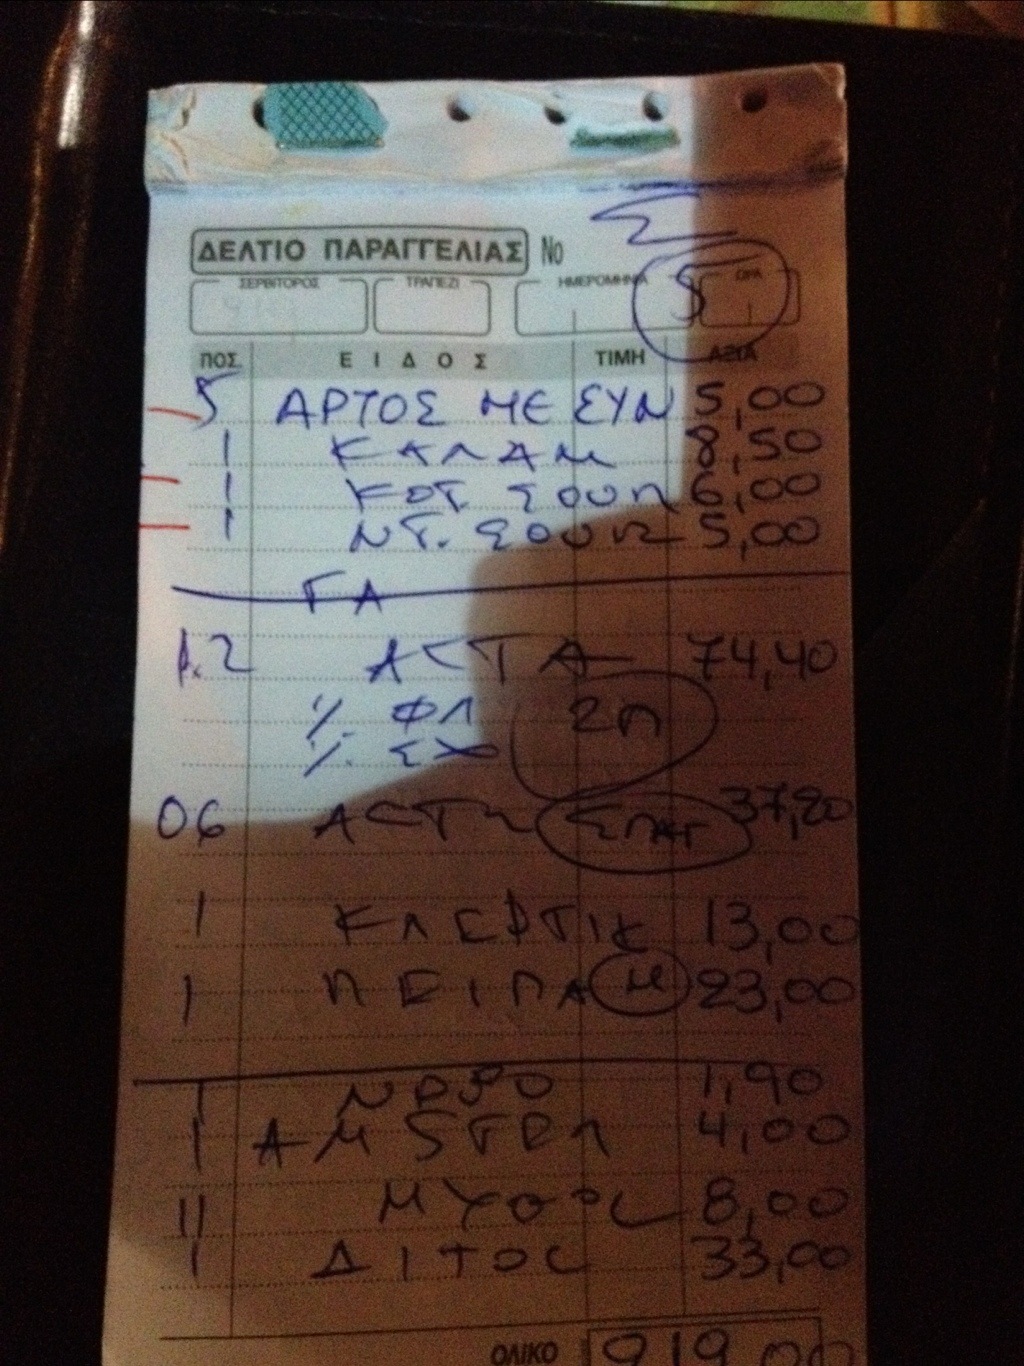 ΔΕΛΤΙΟ ΠΑΡΑΓΓΕΛΙΑΣ No
ΣΕΡΒΙΤΟΡΟΣ ΤΡΑΠΕΖΙ ΗΜΕΡΟΜΗΝΙΑ ΩΡΑ
5
ΠΟΣ. ΕΙΔΟΣ ΤΙΜΗ ΑΞΙΑ
5 ΑΡΤΟΣ ΜΕ ΣΥΝ 5,00
1 ΚΑΛΑΜ 8,50
1 ΚΟΤ. ΣΟΥΠ 6,00
1 ΝΤ. ΣΟΥΠ 5,00
ΓΑ
1.2 ΑΣΤΑ 74,40
½ ΦΛ 2Π
½ ΣΧ
06 ΑΣΤ ΣΠΑΓ 37,20
1 ΚΛΕΦΤΙΚ 13,00
1 ΠΕΙΠΑ Μ 23,00
1 ΝΡ 1,90
1 ΑΜSΤΕΛ 4,00
11 ΜΥΘΟΣ 8,00
1 ΔΙΤΟΣ 33,00
ΟΛΙΚΟ 919,00